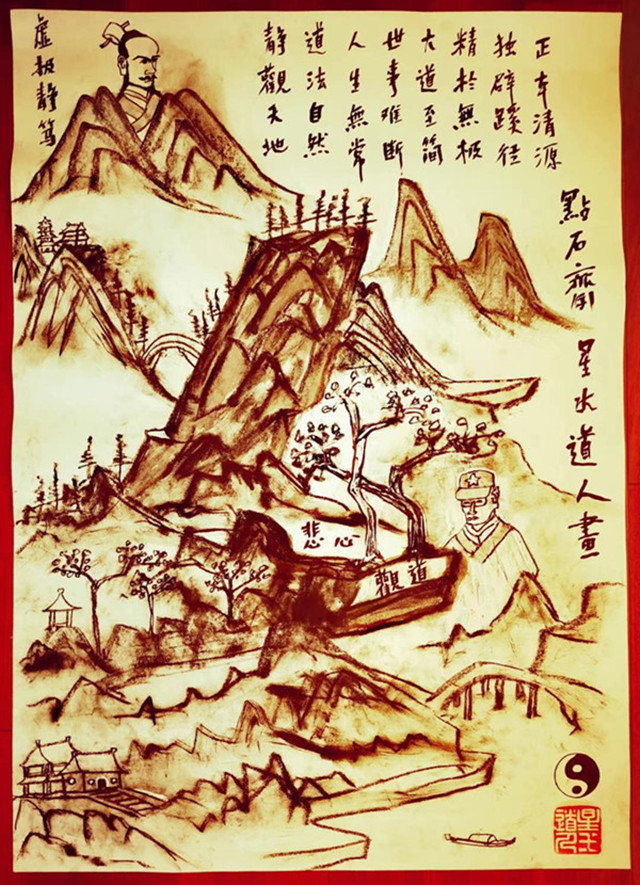 正本清源
独辟蹊径
精於無极
大道至简
世事难断
人生無常
道法自然
靜觀天地
虚极靜篤
點石齋 星水道人畫
悲心
觀道
星水道人